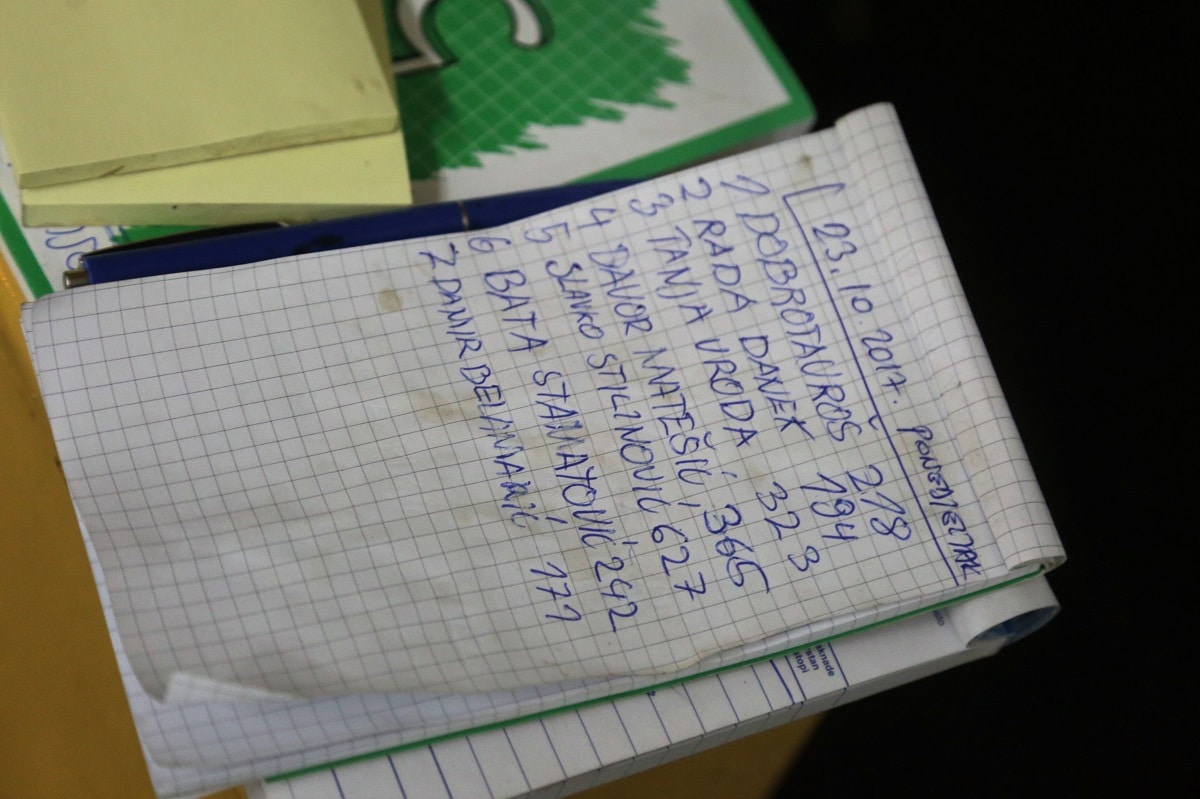 23. 10. 2017. PONEDJELJAK
1 DOBROTA UROŠ 218
2 RADA DANEK 194
3 TANJA URODA 323
4 DAVOR MATEŠIĆ 365
5 SLAVKO STILINOVIĆ 627
6 BATA STAMATOVIĆ 242
7 DAMIR BELAMARIĆ 171